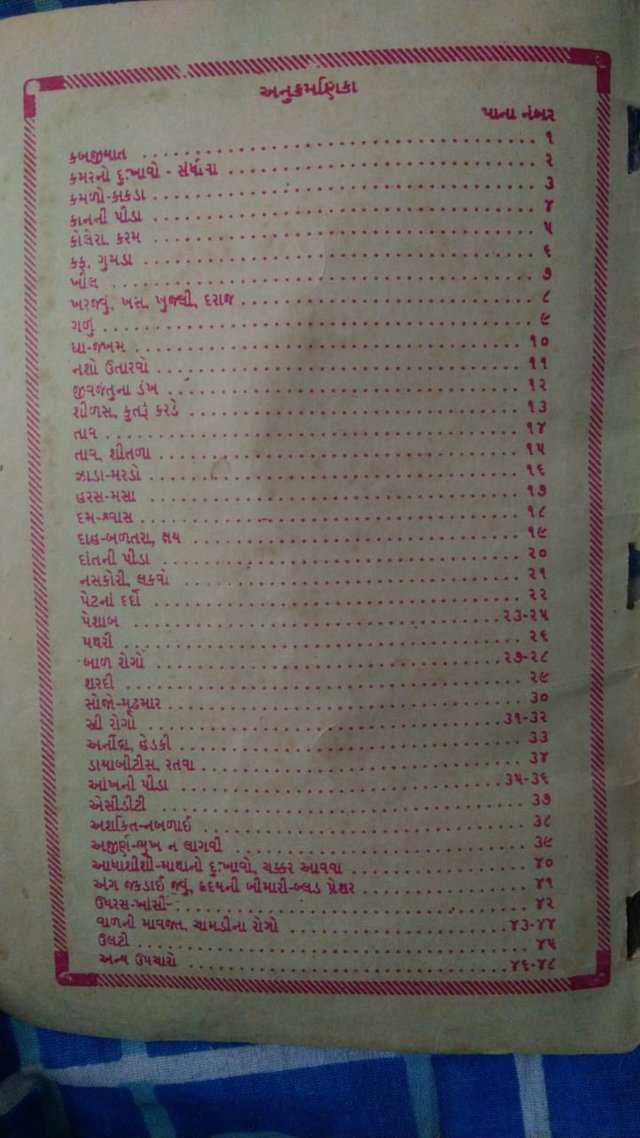 અનુક્રમણિકા
પાના નંબર
કબજીયાત ૧
કમરનો દુઃખાવો - સંધીવા ૨
કમળો-કાકડા ૩
કાનની પીડા ૪
કોલેરા, કરમ ૫
કફ, ગુમડા ૬
ખીલ ૭
ખરજવું, ખસ, ખુજલી, દરાજ ૮
ગળું ૯
ઘા-જખમ ૧૦
નશો ઉતારવો ૧૧
જીવજંતુના ડંખ ૧૨
શીળસ, કુતરૂં કરડે ૧૩
તાવ ૧૪
તાવ, શીતળા ૧૫
ઝાડા-મરડો ૧૬
હરસ-મસા ૧૭
દમ-શ્વાસ ૧૮
દાહ-બળતરા, ક્ષય ૧૯
દાંતની પીડા ૨૦
નસકોરી, લકવો ૨૧
પેટના દર્દો ૨૨
પેશાબ ૨૩-૨૫
પથરી ૨૬
બાળ રોગો ૨૭-૨૮
શરદી ૨૯
સોજો-મૂઢમાર ૩૦
સ્ત્રી રોગો ૩૧-૩૨
અનીંદ્રા, હેડકી ૩૩
ડાયાબીટીસ, રતવા ૩૪
આંખની પીડા ૩૫-૩૬
એસીડીટી ૩૭
અશકિત-નબળાઈ ૩૮
અજીર્ણ-ભુખ ન લાગવી ૩૯
આધાશીશી-માથાનો દુઃખાવો, ચક્કર આવવા ૪૦
અંગ જકડાઈ જવું, હ્રદયની બીમારી-બ્લડ પ્રેશર ૪૧
ઉધરસ-ખાંસી ૪૨
વાળની માવજત, ચામડીના રોગો ૪૩-૪૪
ઉલટી ૪૫
અન્ય ઉપચારો ૪૬-૪૮